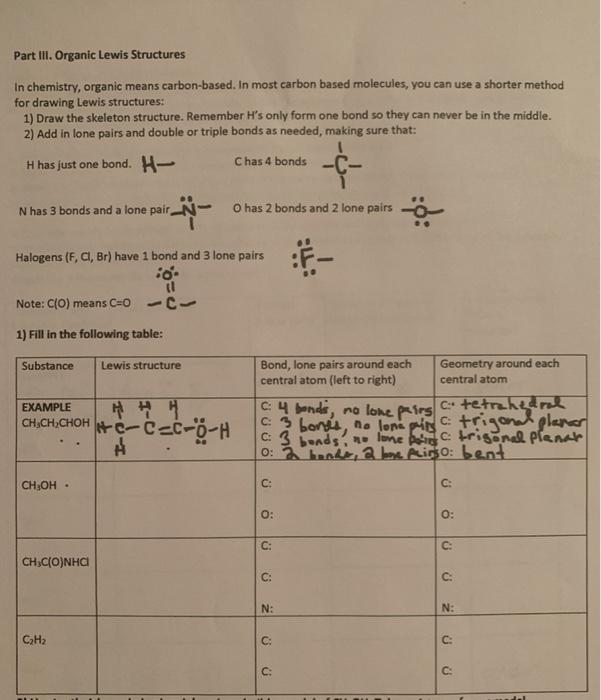 Part III. Organic Lewis Structures
In chemistry, organic means carbon-based. In most carbon based molecules, you can use a shorter method
for drawing Lewis structures:
1) Draw the skeleton structure. Remember H's only form one bond so they can never be in the middle.
2) Add in lone pairs and double or triple bonds as needed, making sure that:
H has just one bond. H— C has 4 bonds –C–
N has 3 bonds and a lone pair –N– O has 2 bonds and 2 lone pairs –O–
Halogens (F, Cl, Br) have 1 bond and 3 lone pairs :F–
:O:
Note: C(O) means C=O –C–
1) Fill in the following table:
Substance Lewis structure Bond, lone pairs around each central atom (left to right) Geometry around each central atom
EXAMPLE
CH₃CH₂CHOH
H H H
H-C-C=C-O-H
H
C: 4 bonds, no lone pairs C: tetrahedral
C: 3 bonds, no lone pairs C: trigonal planar
C: 3 bonds, no lone pairs C: trigonal planar
O: 2 bonds, 2 lone pairs O: bent
CH₃OH C: C:
O: O:
CH₃C(O)NHCl C: C:
C: C:
N: N:
C₂H₂ C: C:
C: C: